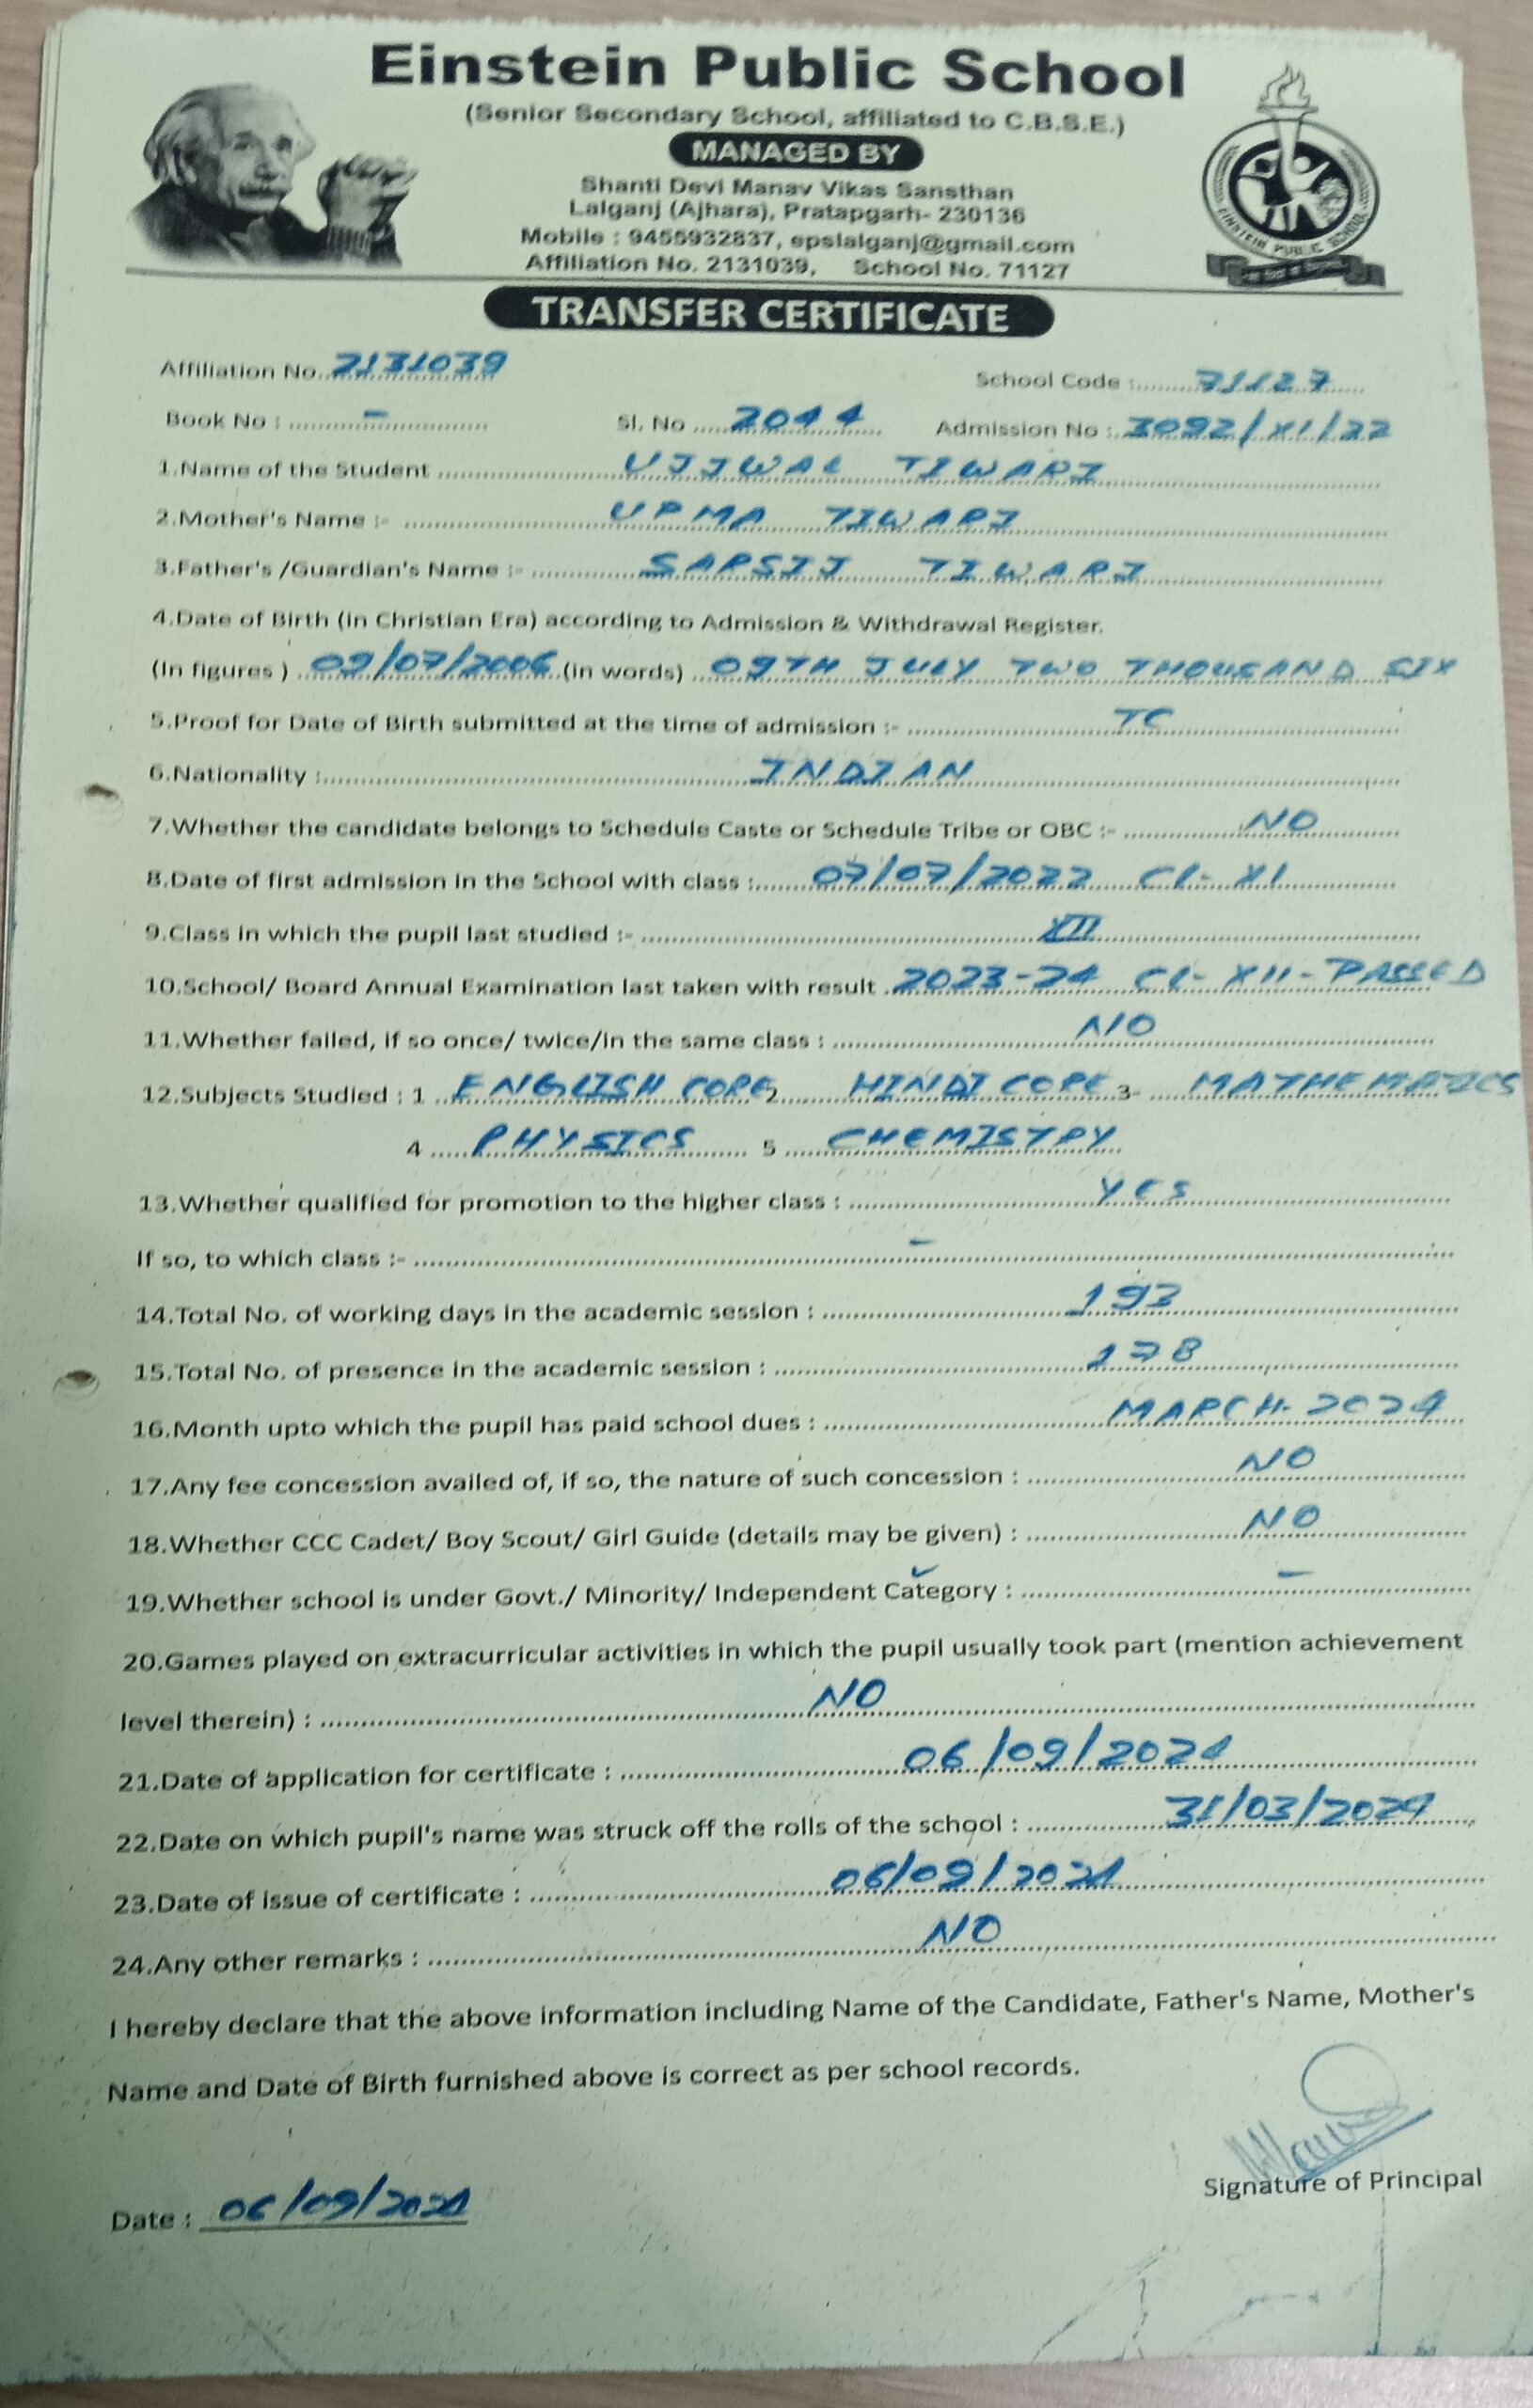 Einstein Public School
(Senior Secondary School, affiliated to C.B.S.E.)
MANAGED BY
Shanti Devi Manav Vikas Sansthan
Lalganj (Ajhara), Pratapgarh- 230136
Mobile : 9455932837, epslalganj@gmail.com
Affiliation No. 2131039, School No. 71127
EINSTEIN PUBLIC SCHOOL
TRANSFER CERTIFICATE
Affiliation No. 2131039 School Code : 71127
Book No : - Sl. No 2044 Admission No : 3092/XI/22
1.Name of the Student UJJWAL TIWARI
2.Mother's Name :- UPMA TIWARI
3.Father's /Guardian's Name :- SARSIJ TIWARI
4.Date of Birth (in Christian Era) according to Admission & Withdrawal Register.
(In figures ) 09/07/2006 (in words) 09TH JULY TWO THOUSAND SIX
5.Proof for Date of Birth submitted at the time of admission :- TC
6.Nationality : INDIAN
7.Whether the candidate belongs to Schedule Caste or Schedule Tribe or OBC :- NO
8.Date of first admission in the School with class : 07/07/2022 CL- XI
9.Class in which the pupil last studied :- XII
10.School/ Board Annual Examination last taken with result 2023-24 CL- XII-PASSED
11.Whether failed, if so once/ twice/in the same class : NO
12.Subjects Studied : 1 ENGLISH CORE 2 HINDI CORE 3- MATHEMATICS
4 PHYSICS 5 CHEMISTRY
13.Whether qualified for promotion to the higher class : YES
If so, to which class :- -
14.Total No. of working days in the academic session : 193
15.Total No. of presence in the academic session : 178
16.Month upto which the pupil has paid school dues : MARCH-2024
17.Any fee concession availed of, if so, the nature of such concession : NO
18.Whether CCC Cadet/ Boy Scout/ Girl Guide (details may be given) : NO
19.Whether school is under Govt./ Minority/ Independent Category : -
20.Games played on extracurricular activities in which the pupil usually took part (mention achievement
level therein) : NO
21.Date of application for certificate : 06/09/2024
22.Date on which pupil's name was struck off the rolls of the school : 31/03/2024
23.Date of issue of certificate : 06/09/2024
24.Any other remarks : NO
I hereby declare that the above information including Name of the Candidate, Father's Name, Mother's
Name and Date of Birth furnished above is correct as per school records.
Signature of Principal
Date : 06/09/2024